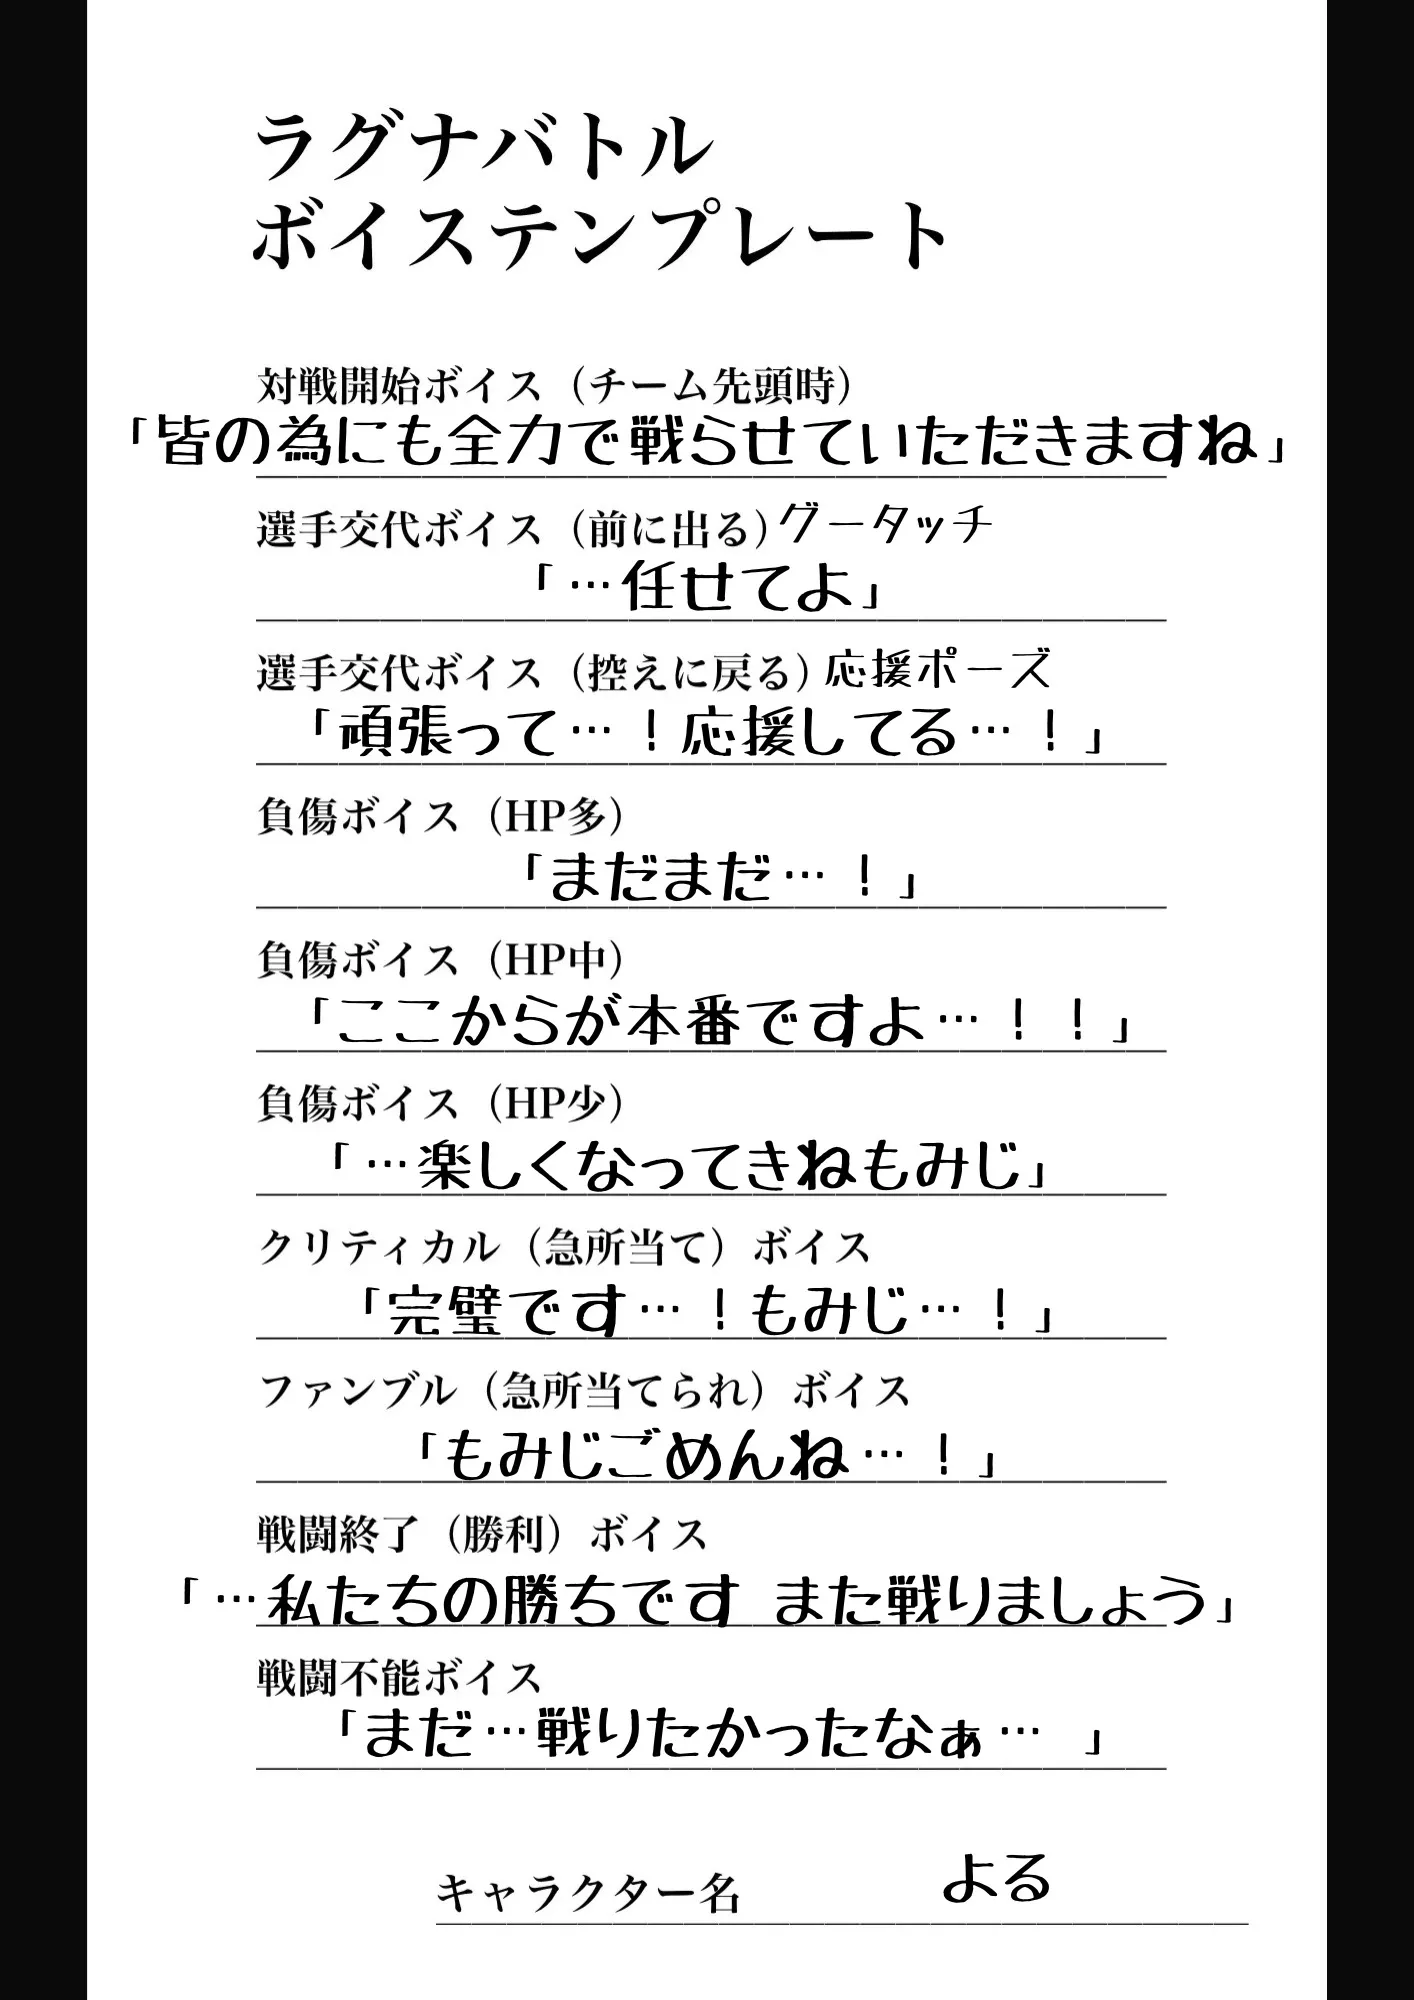 ラグナバトル
ボイステンプレート
対戦開始ボイス（チーム先頭時）
「皆の為にも全力で戦らせていただきますね」
選手交代ボイス（前に出る）グータッチ
「…任せてよ」
選手交代ボイス（控えに戻る）応援ポーズ
「頑張って…！応援してる…！」
負傷ボイス（HP多）
「まだまだ…！」
負傷ボイス（HP中）
「ここからが本番ですよ…！！」
負傷ボイス（HP少）
「…楽しくなってきねもみじ」
クリティカル（急所当て）ボイス
「完璧です…！もみじ…！」
ファンブル（急所当てられ）ボイス
「もみじごめんね…！」
戦闘終了（勝利）ボイス
「…私たちの勝ちです また戦りましょう」
戦闘不能ボイス
「まだ…戦りたかったなぁ… 」
キャラクター名 よる